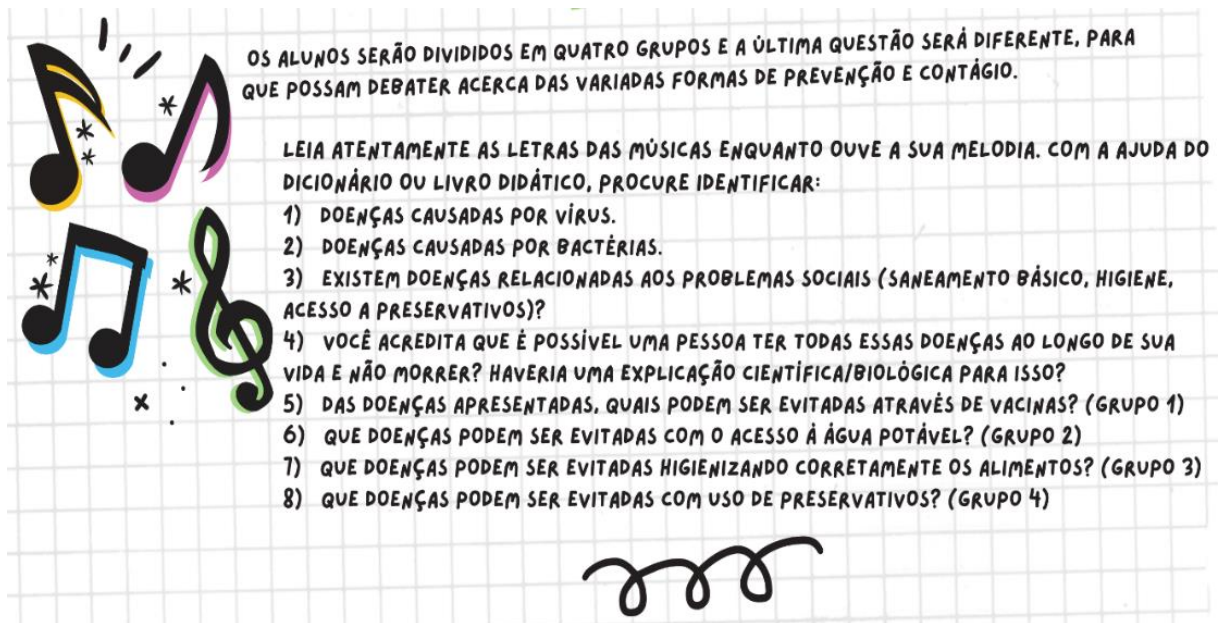 OS ALUNOS SERÃO DIVIDIDOS EM QUATRO GRUPOS E A ÚLTIMA QUESTÃO SERÁ DIFERENTE, PARA
QUE POSSAM DEBATER ACERCA DAS VARIADAS FORMAS DE PREVENÇÃO E CONTÁGIO.
LEIA ATENTAMENTE AS LETRAS DAS MÚSICAS ENQUANTO OUVE A SUA MELODIA. COM A AJUDA DO
DICIONÁRIO OU LIVRO DIDÁTICO, PROCURE IDENTIFICAR:
1) DOENÇAS CAUSADAS POR VÍRUS.
2) DOENÇAS CAUSADAS POR BACTÉRIAS.
3) EXISTEM DOENÇAS RELACIONADAS AOS PROBLEMAS SOCIAIS (SANEAMENTO BÁSICO, HIGIENE,
ACESSO A PRESERVATIVOS)?
4) VOCÊ ACREDITA QUE É POSSÍVEL UMA PESSOA TER TODAS ESSAS DOENÇAS AO LONGO DE SUA
VIDA E NÃO MORRER? HAVERIA UMA EXPLICAÇÃO CIENTÍFICA/BIOLÓGICA PARA ISSO?
5) DAS DOENÇAS APRESENTADAS, QUAIS PODEM SER EVITADAS ATRAVÉS DE VACINAS? (GRUPO 1)
6) QUE DOENÇAS PODEM SER EVITADAS COM O ACESSO À ÁGUA POTÁVEL? (GRUPO 2)
7) QUE DOENÇAS PODEM SER EVITADAS HIGIENIZANDO CORRETAMENTE OS ALIMENTOS? (GRUPO 3)
8) QUE DOENÇAS PODEM SER EVITADAS COM USO DE PRESERVATIVOS? (GRUPO 4)